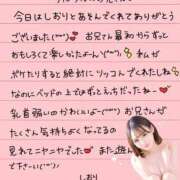 今日はしおりとあそんでくれてありがとう
ございました(°°)♡ お兄さん最初からずっと
おもしろくて楽しかったよ〜(°°)♪ 私が
ボケたりすると絶対にツッコんでくれたしね
なのにベッドの上ではずっとえっちだったね〜♡
乳首弱いのかわいいよ〜(°°)♡ お兄さんが
たくさん気持ちよくなってるの
見れてニヤニヤでした♡ また遊ん
で下さーい(°°)♡
しおり